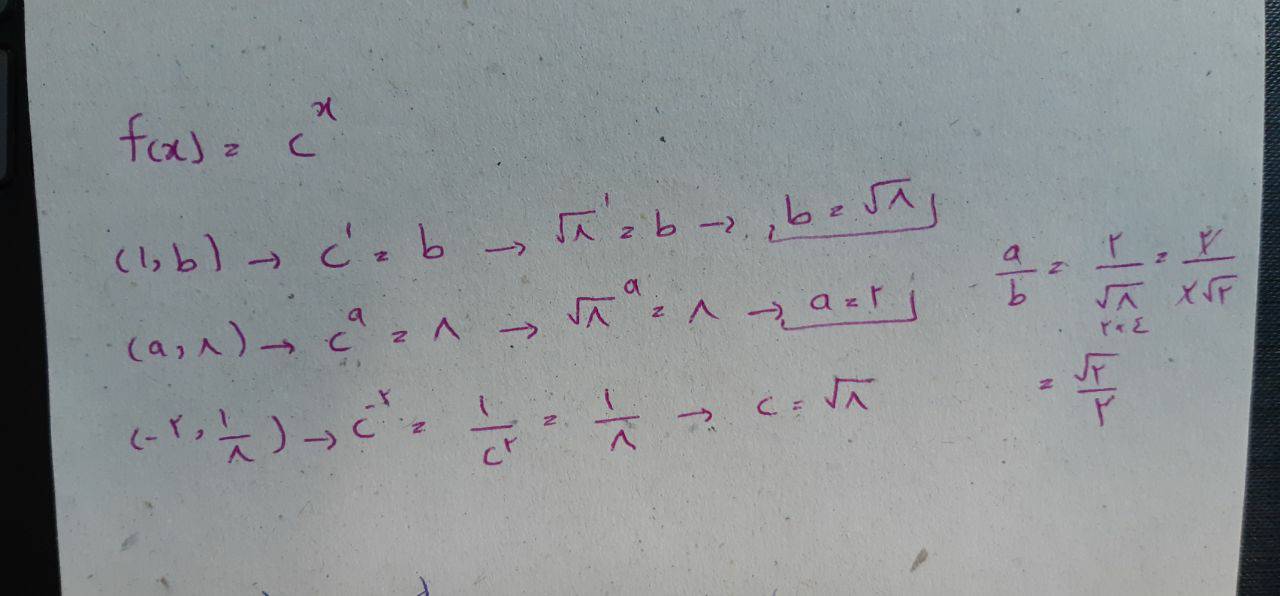 f(x) = c^x
(1, b) → c^1 = b → √۸^1 = b → b = √۸
(a, ۸) → c^a = ۸ → √۸^a = ۸ → a = ۲
(-۲, ۱/۸) → c^-۲ = ۱/c^۲ = ۱/۸ → c = √۸
a/b = ۲/√۸ = ۲/۲√۲
۲×٤
= √۲/۲